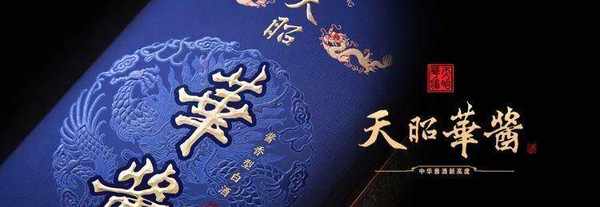 天昭
華醬
酱香型白酒
天昭華醬
中华酱酒新高度